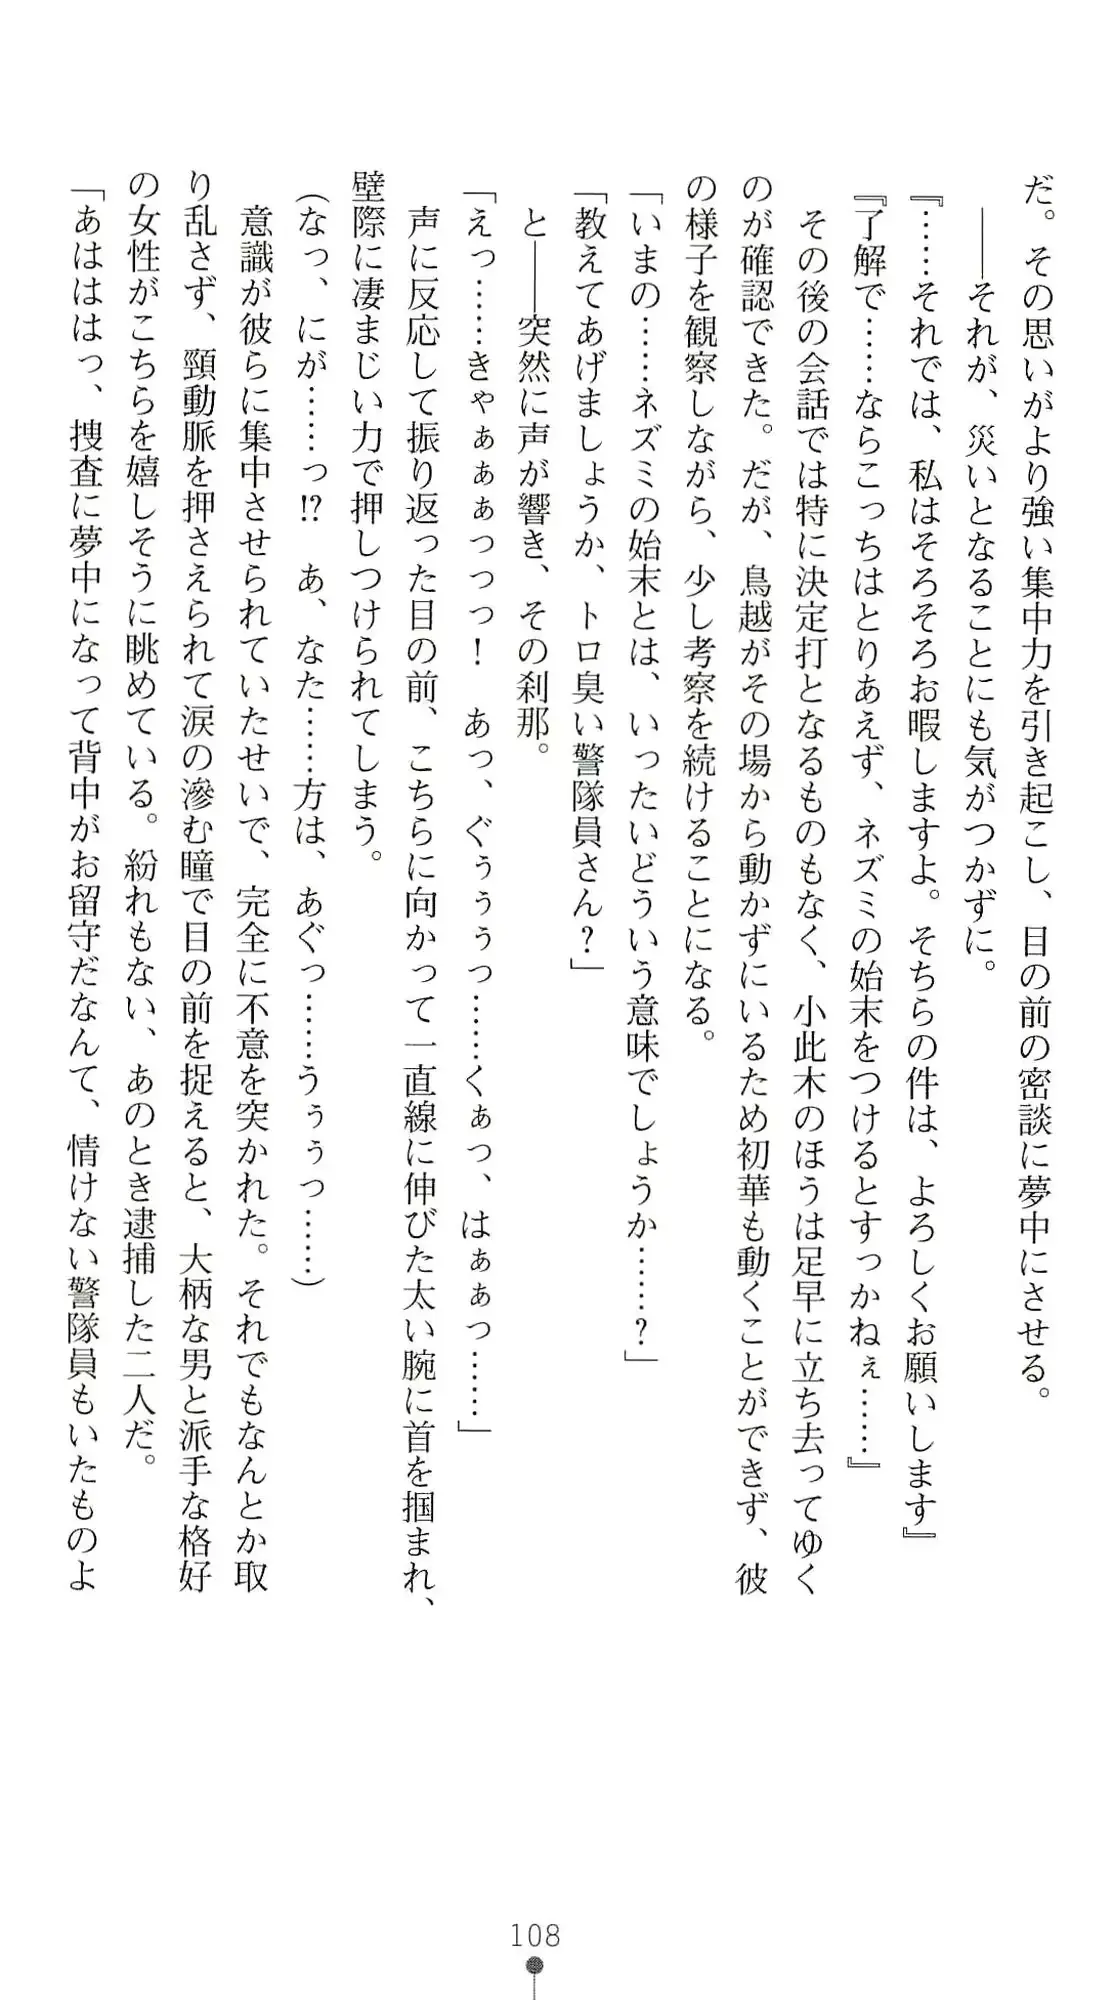 だ。その思いがより強い集中力を引き起こし、目の前の密談に夢中にさせる。
――それが、災いとなることにも気がつかずに。
『……それでは、私はそろそろお暇しますよ。そちらの件は、よろしくお願いします』
『了解で……ならこっちはとりあえず、ネズミの始末をつけるとすっかねぇ……』
その後の会話では特に決定打となるものもなく、小此木のほうは足早に立ち去ってゆく
のが確認できた。だが、鳥越がその場から動かずにいるため初華も動くことができず、彼
の様子を観察しながら、少し考察を続けることになる。
「いまの……ネズミの始末とは、いったいどういう意味でしょうか……？」
「教えてあげましょうか、トロ臭い警隊員さん？」
と――突然に声が響き、その刹那。
「えっ……きゃぁぁぁっっっ！　あっ、ぐぅぅぅっ……くぁっ、はぁぁっ……」
声に反応して振り返った目の前、こちらに向かって一直線に伸びた太い腕に首を掴まれ、
壁際に凄まじい力で押しつけられてしまう。
（なっ、にが……っ!?　あ、なた……方は、あぐっ……うぅぅっ……）
意識が彼らに集中させられていたせいで、完全に不意を突かれた。それでもなんとか取
り乱さず、頸動脈を押さえられて涙の滲む瞳で目の前を捉えると、大柄な男と派手な格好
の女性がこちらを嬉しそうに眺めている。紛れもない、あのとき逮捕した二人だ。
「あはははっ、捜査に夢中になって背中がお留守だなんて、情けない警隊員もいたものよ
108